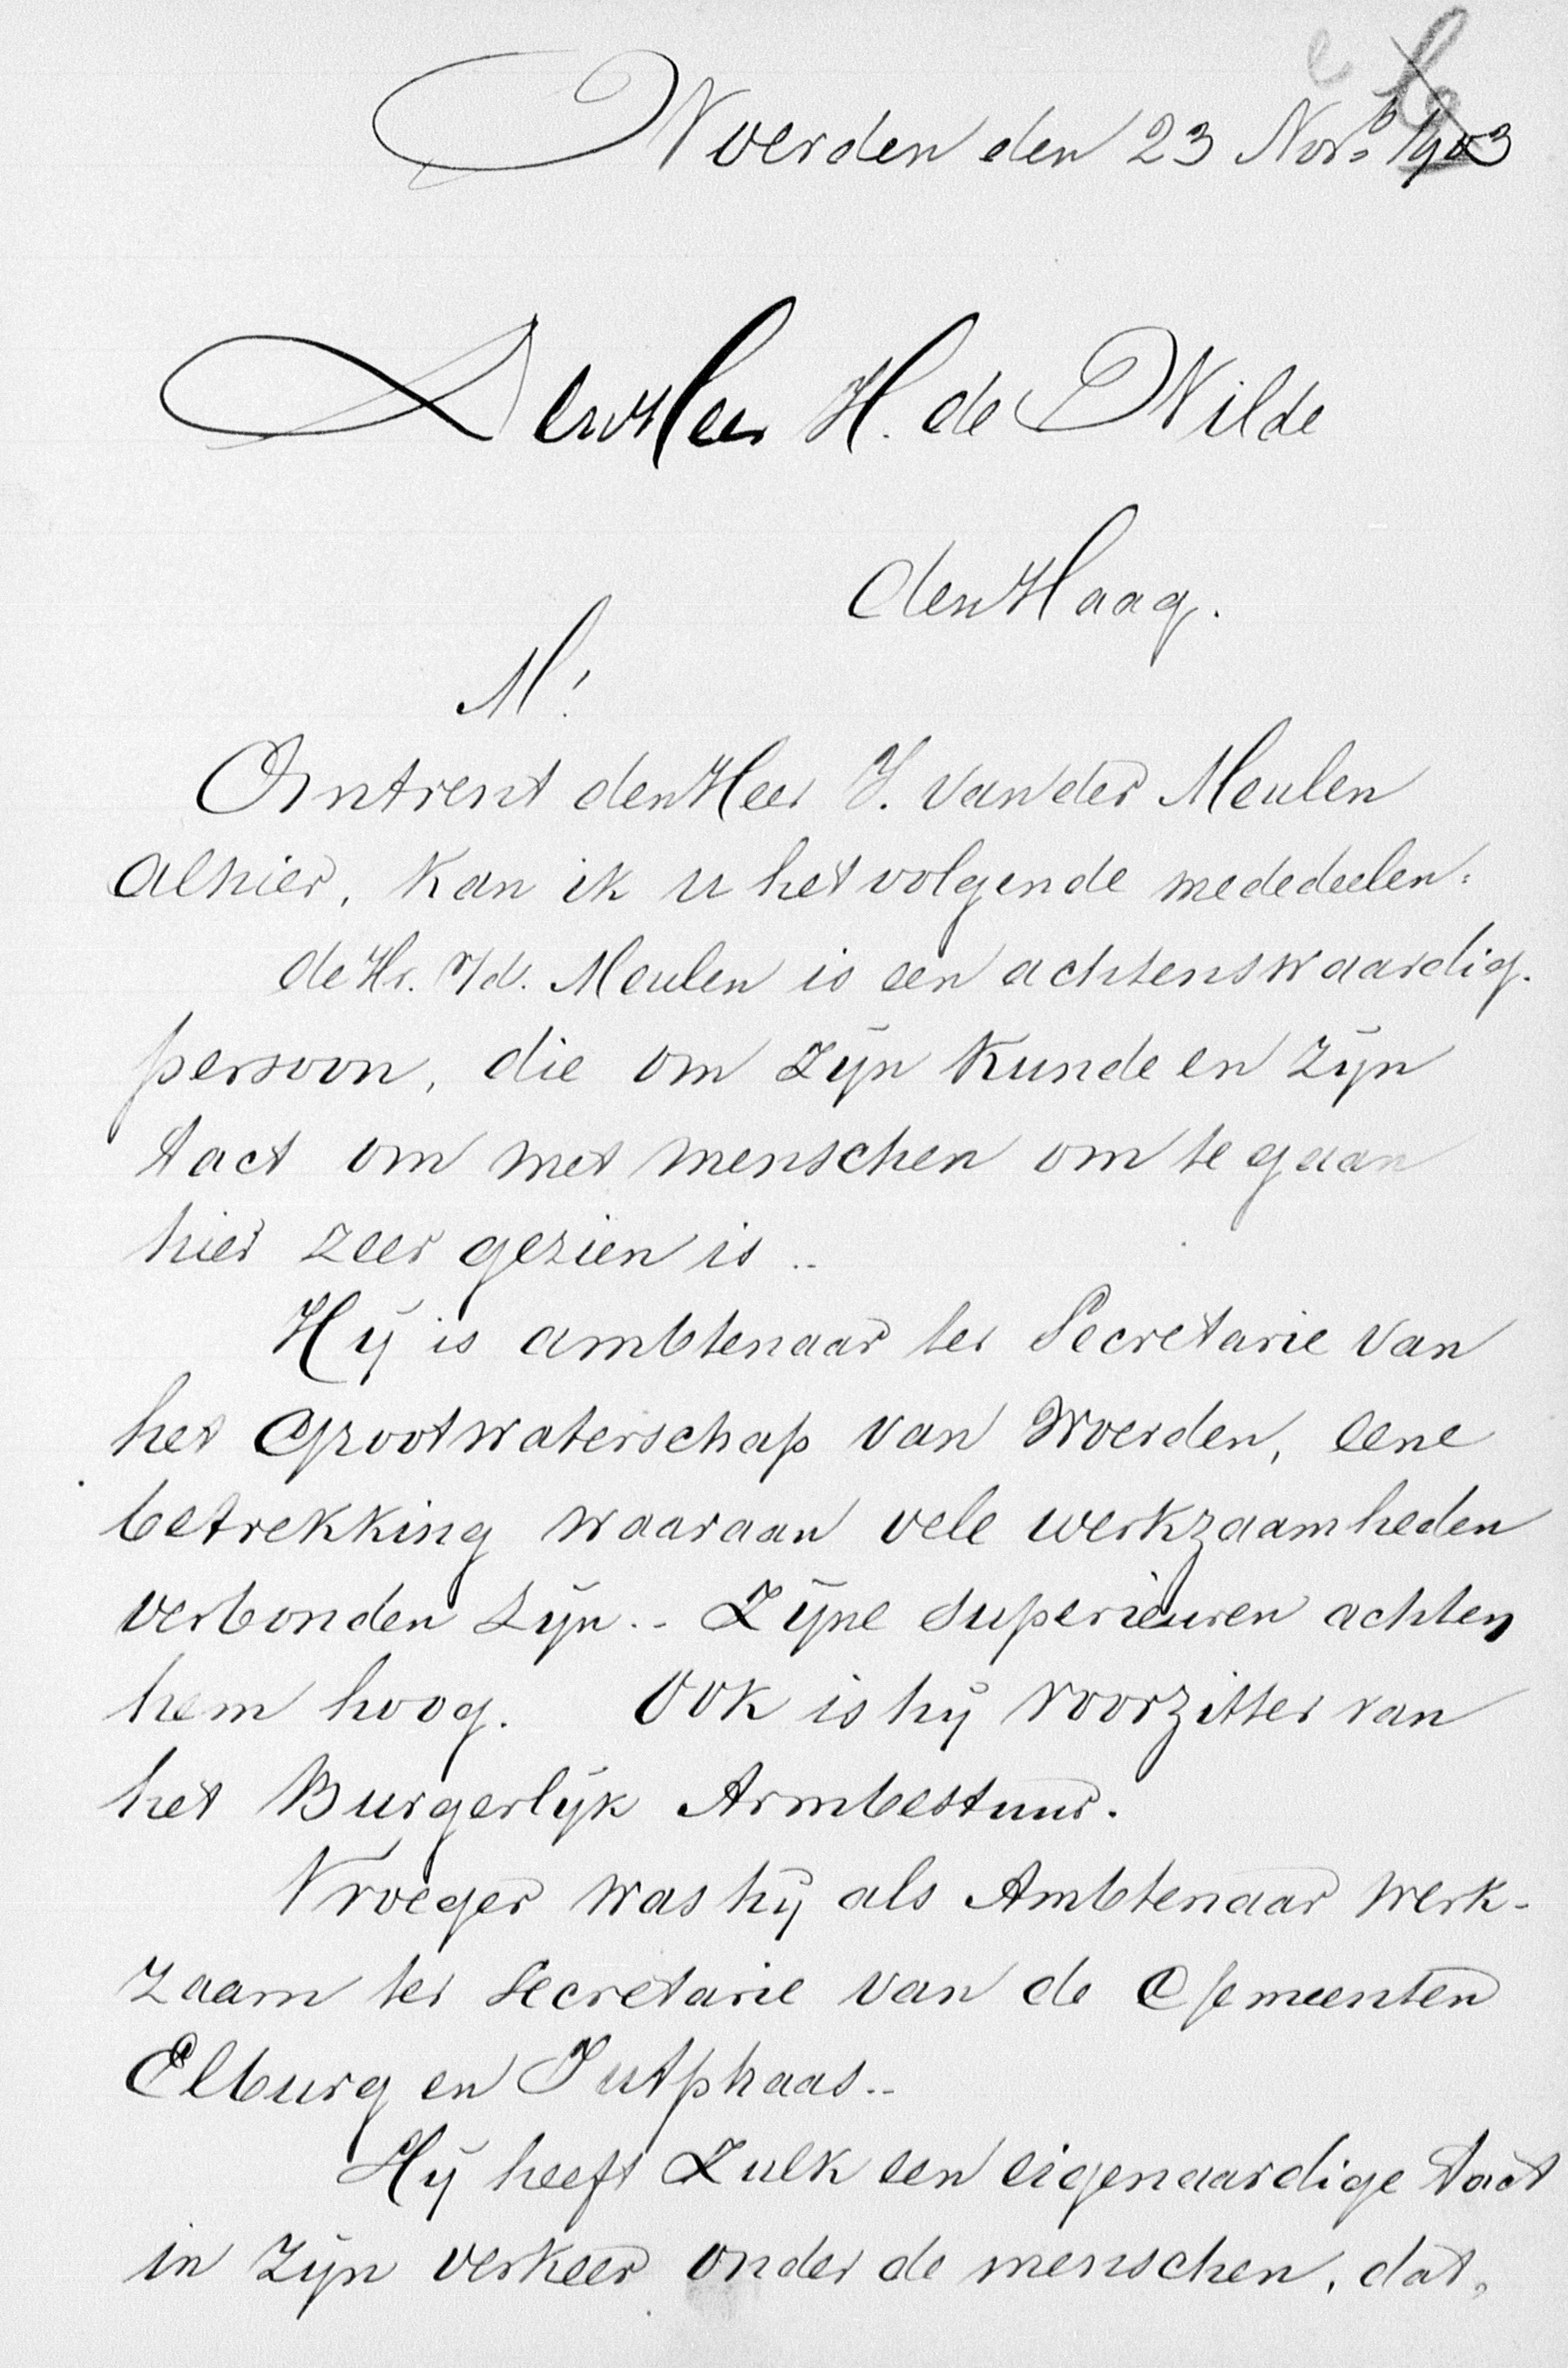 Woerden den 23 Novb 1903
Den Heer H. de Wilde
den Haag.
M!
Omtrent den Heer J. van der Meulen
alhier, kan ik u het volgende mededeelen:
de Hr. v/d. Meulen is een achtenswaardig.
persoon, die om zijn kunde en zijn
tact om met menschen om te gaan
hier zeer gezien is..
Hij is ambtenaar ter Secretarie van
het Grootwaterschap van Woerden, eene
betrekking waaraan vele werkzaamheden
verbonden zijn.. Zijne superieuren achten
hem hoog. Ook is hij voorzitter van
het Burgerlijk Armbestuur.
Vroeger was hij als Ambtenaar werk-
zaam ter Secretarie van de Gemeenten
Elburg en Jutphaas..
Hij heeft zulk een eigenaardige tact
in zijn verkeer onder de menschen, dat,